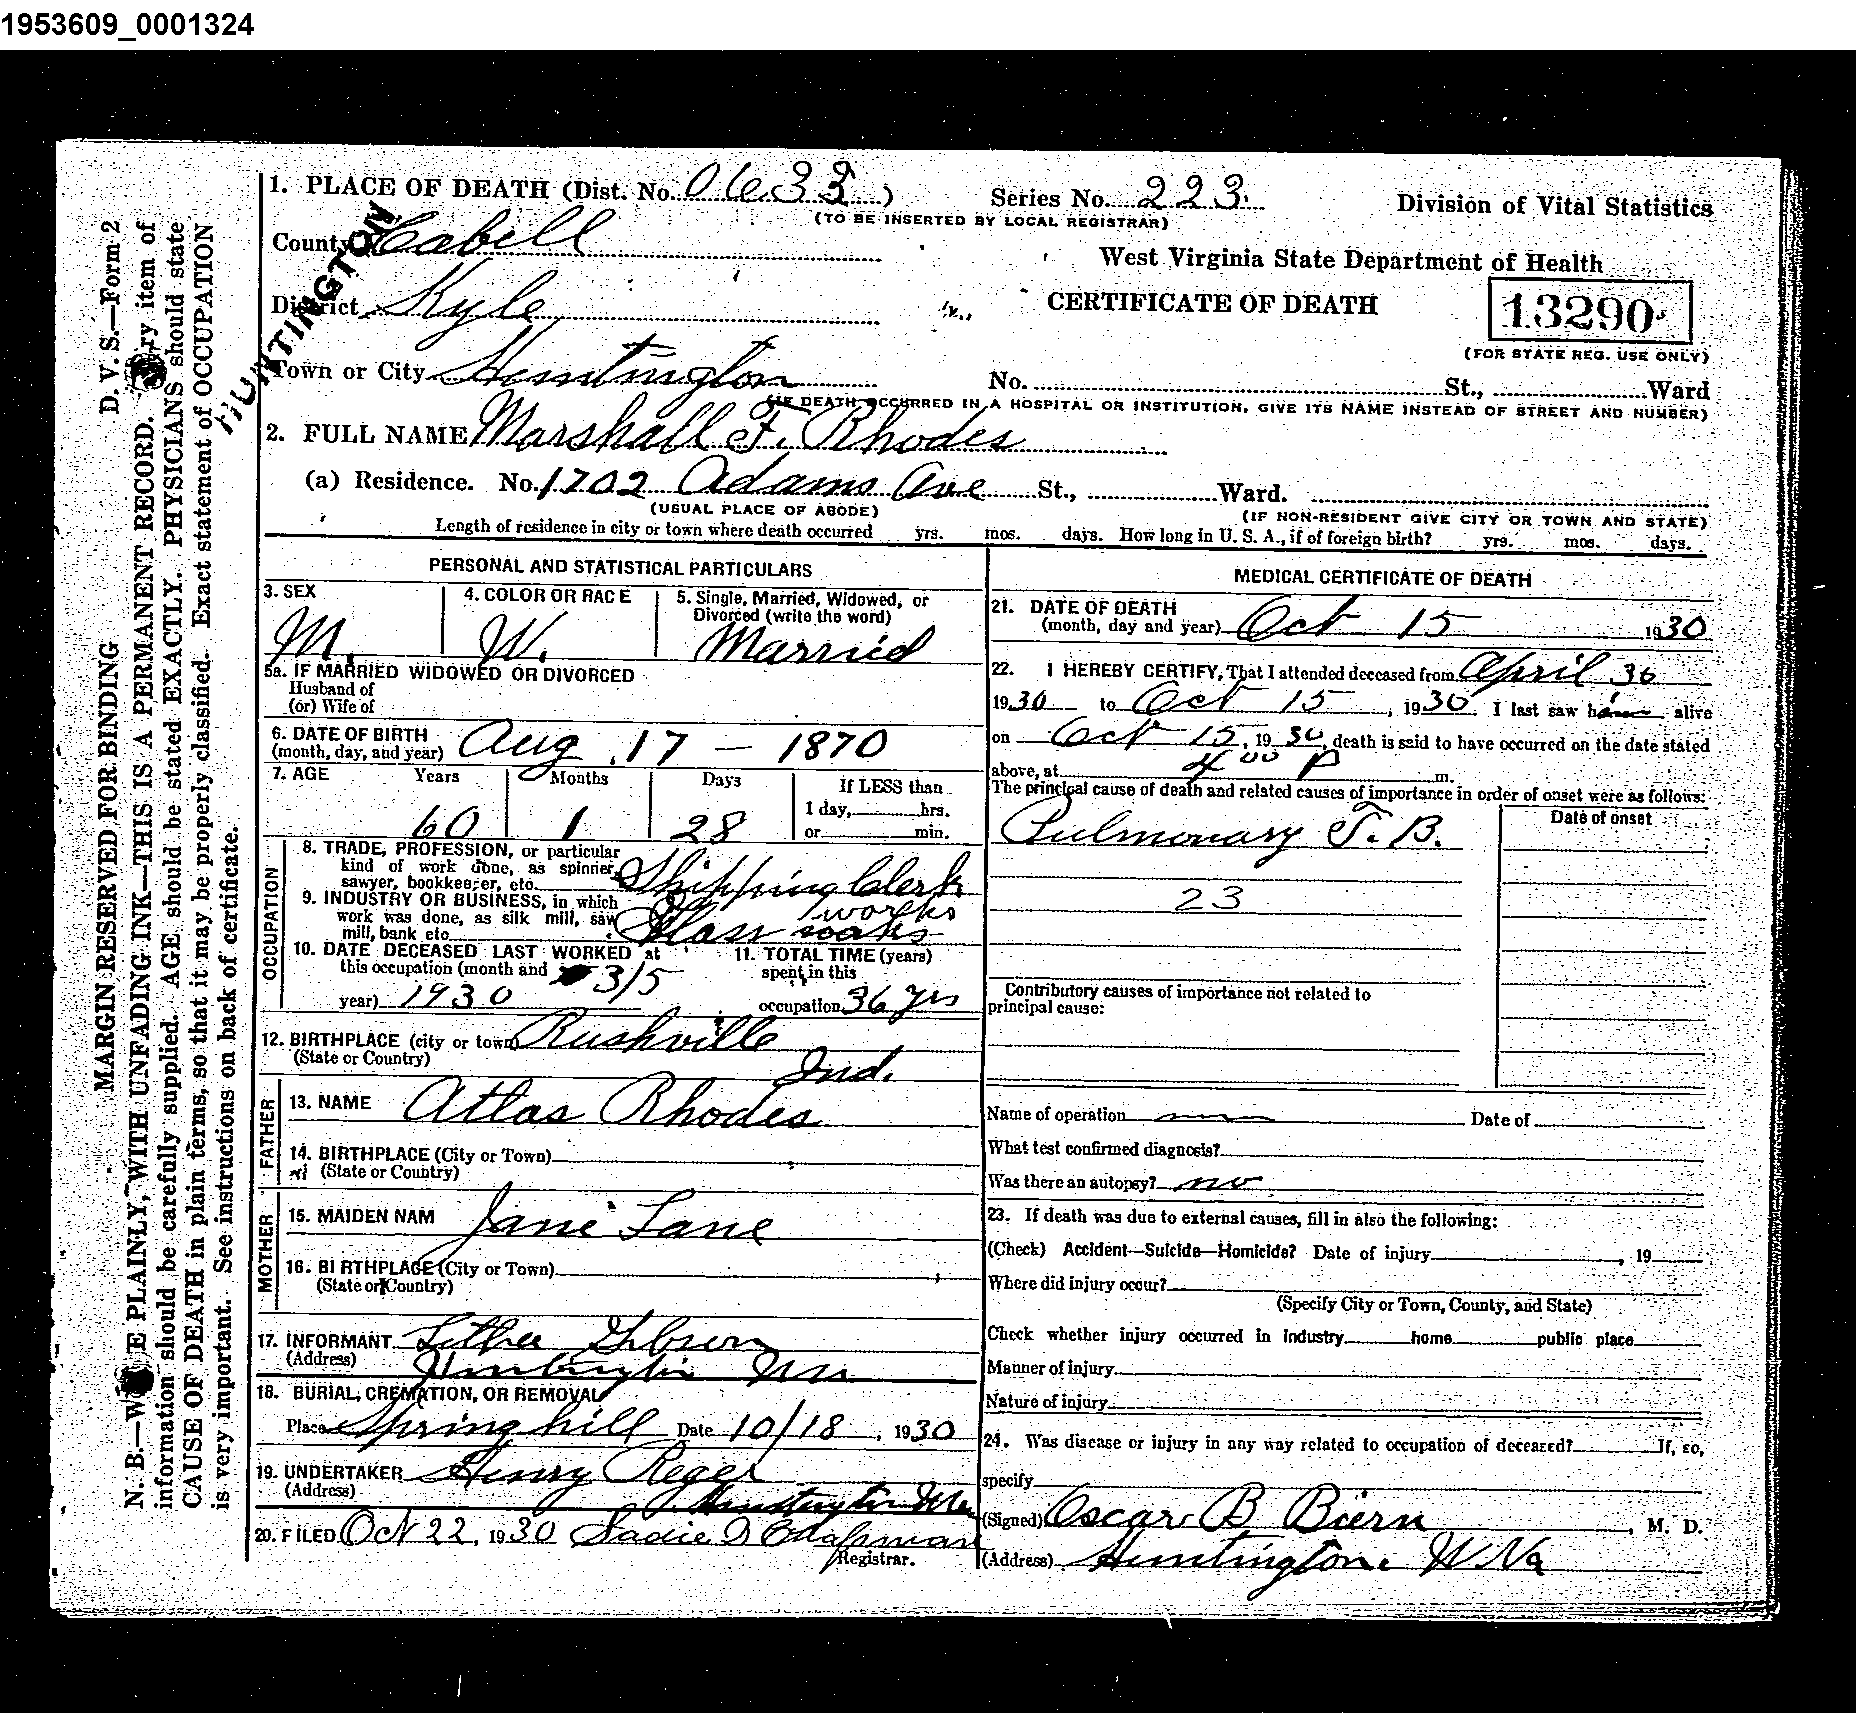 1953609_0001324
1. PLACE OF DEATH (Dist. No. 0633)
Series No. 223.
Division of Vital Statistics
(TO BE INSERTED BY LOCAL REGISTRAR)
County Cabell
HUNTINGTON
West Virginia State Department of Health
District Kyle
CERTIFICATE OF DEATH
13290
(FOR STATE REG. USE ONLY)
Town or City Huntington
No. St., Ward
(IF DEATH OCCURRED IN A HOSPITAL OR INSTITUTION, GIVE ITS NAME INSTEAD OF STREET AND NUMBER)
2. FULL NAME Marshall F. Rhodes
(a) Residence. No. 1702 Adams Ave St., Ward.
(USUAL PLACE OF ABODE)
(IF NON-RESIDENT GIVE CITY OR TOWN AND STATE)
Length of residence in city or town where death occurred yrs. mos. days. How long in U. S. A., if of foreign birth? yrs. mos. days.
PERSONAL AND STATISTICAL PARTICULARS
3. SEX
M.
4. COLOR OR RACE
W.
5. Single, Married, Widowed, or
Divorced (write the word)
Married
5a. IF MARRIED WIDOWED OR DIVORCED
Husband of
(or) Wife of
6. DATE OF BIRTH
(month, day, and year) Aug. 17 - 1870
7. AGE Years Months Days If LESS than
1 day, hrs.
or min.
60 1 28
OCCUPATION
8. TRADE, PROFESSION, or particular
kind of work done, as spinner,
sawyer, bookkeeper, etc. Shipping Clerk
9. INDUSTRY OR BUSINESS, in which
work was done, as silk mill, saw works
mill, bank etc. Glass works
10. DATE DECEASED LAST WORKED at
this occupation (month and 3/5
year) 1930
11. TOTAL TIME (years)
spent in this
occupation 36 yrs
12. BIRTHPLACE (city or town) Rushville
(State or Country) Ind.
FATHER
13. NAME Atlas Rhodes
14. BIRTHPLACE (City or Town)
(State or Country)
MOTHER
15. MAIDEN NAM Jane Lane
16. BIRTHPLACE (City or Town)
(State or Country)
17. INFORMANT Gibson
(Address) Huntington
18. BURIAL, CREMATION, OR REMOVAL
Place Springhill Date 10/18, 1930
19. UNDERTAKER Henry Reger
(Address) Huntington
20. FILED Oct 22, 1930 Sadie D Chapman
Registrar.
MEDICAL CERTIFICATE OF DEATH
21. DATE OF DEATH
(month, day and year) Oct 15 1930
22. I HEREBY CERTIFY, That I attended deceased from April 30
1930 to Oct 15, 1930. I last saw him alive
on Oct 15, 1930, death is said to have occurred on the date stated
above, at 4 00 P m.
The principal cause of death and related causes of importance in order of onset were as follows:
Date of onset
Pulmonary T. B.
23
Contributory causes of importance not related to
principal cause:
Name of operation Date of
What test confirmed diagnosis?
Was there an autopsy? no
23. If death was due to external causes, fill in also the following:
(Check) Accident—Suicide—Homicide? Date of injury , 19
Where did injury occur?
(Specify City or Town, County, and State)
Check whether injury occurred in industry home public place
Manner of injury
Nature of injury
24. Was disease or injury in any way related to occupation of deceased? If, so,
specify
(Signed) Oscar B Biern, M. D.
(Address) Huntington. W Va
D. V. S.—Form 2
MARGIN RESERVED FOR BINDING
N. B.—W E PLAINLY, WITH UNFADING INK—THIS IS A PERMANENT RECORD. ry item of
information should be carefully supplied. AGE should be stated EXACTLY. PHYSICIANS should state
CAUSE OF DEATH in plain terms, so that it may be properly classified. Exact statement of OCCUPATION
is very important. See instructions on back of certificate.